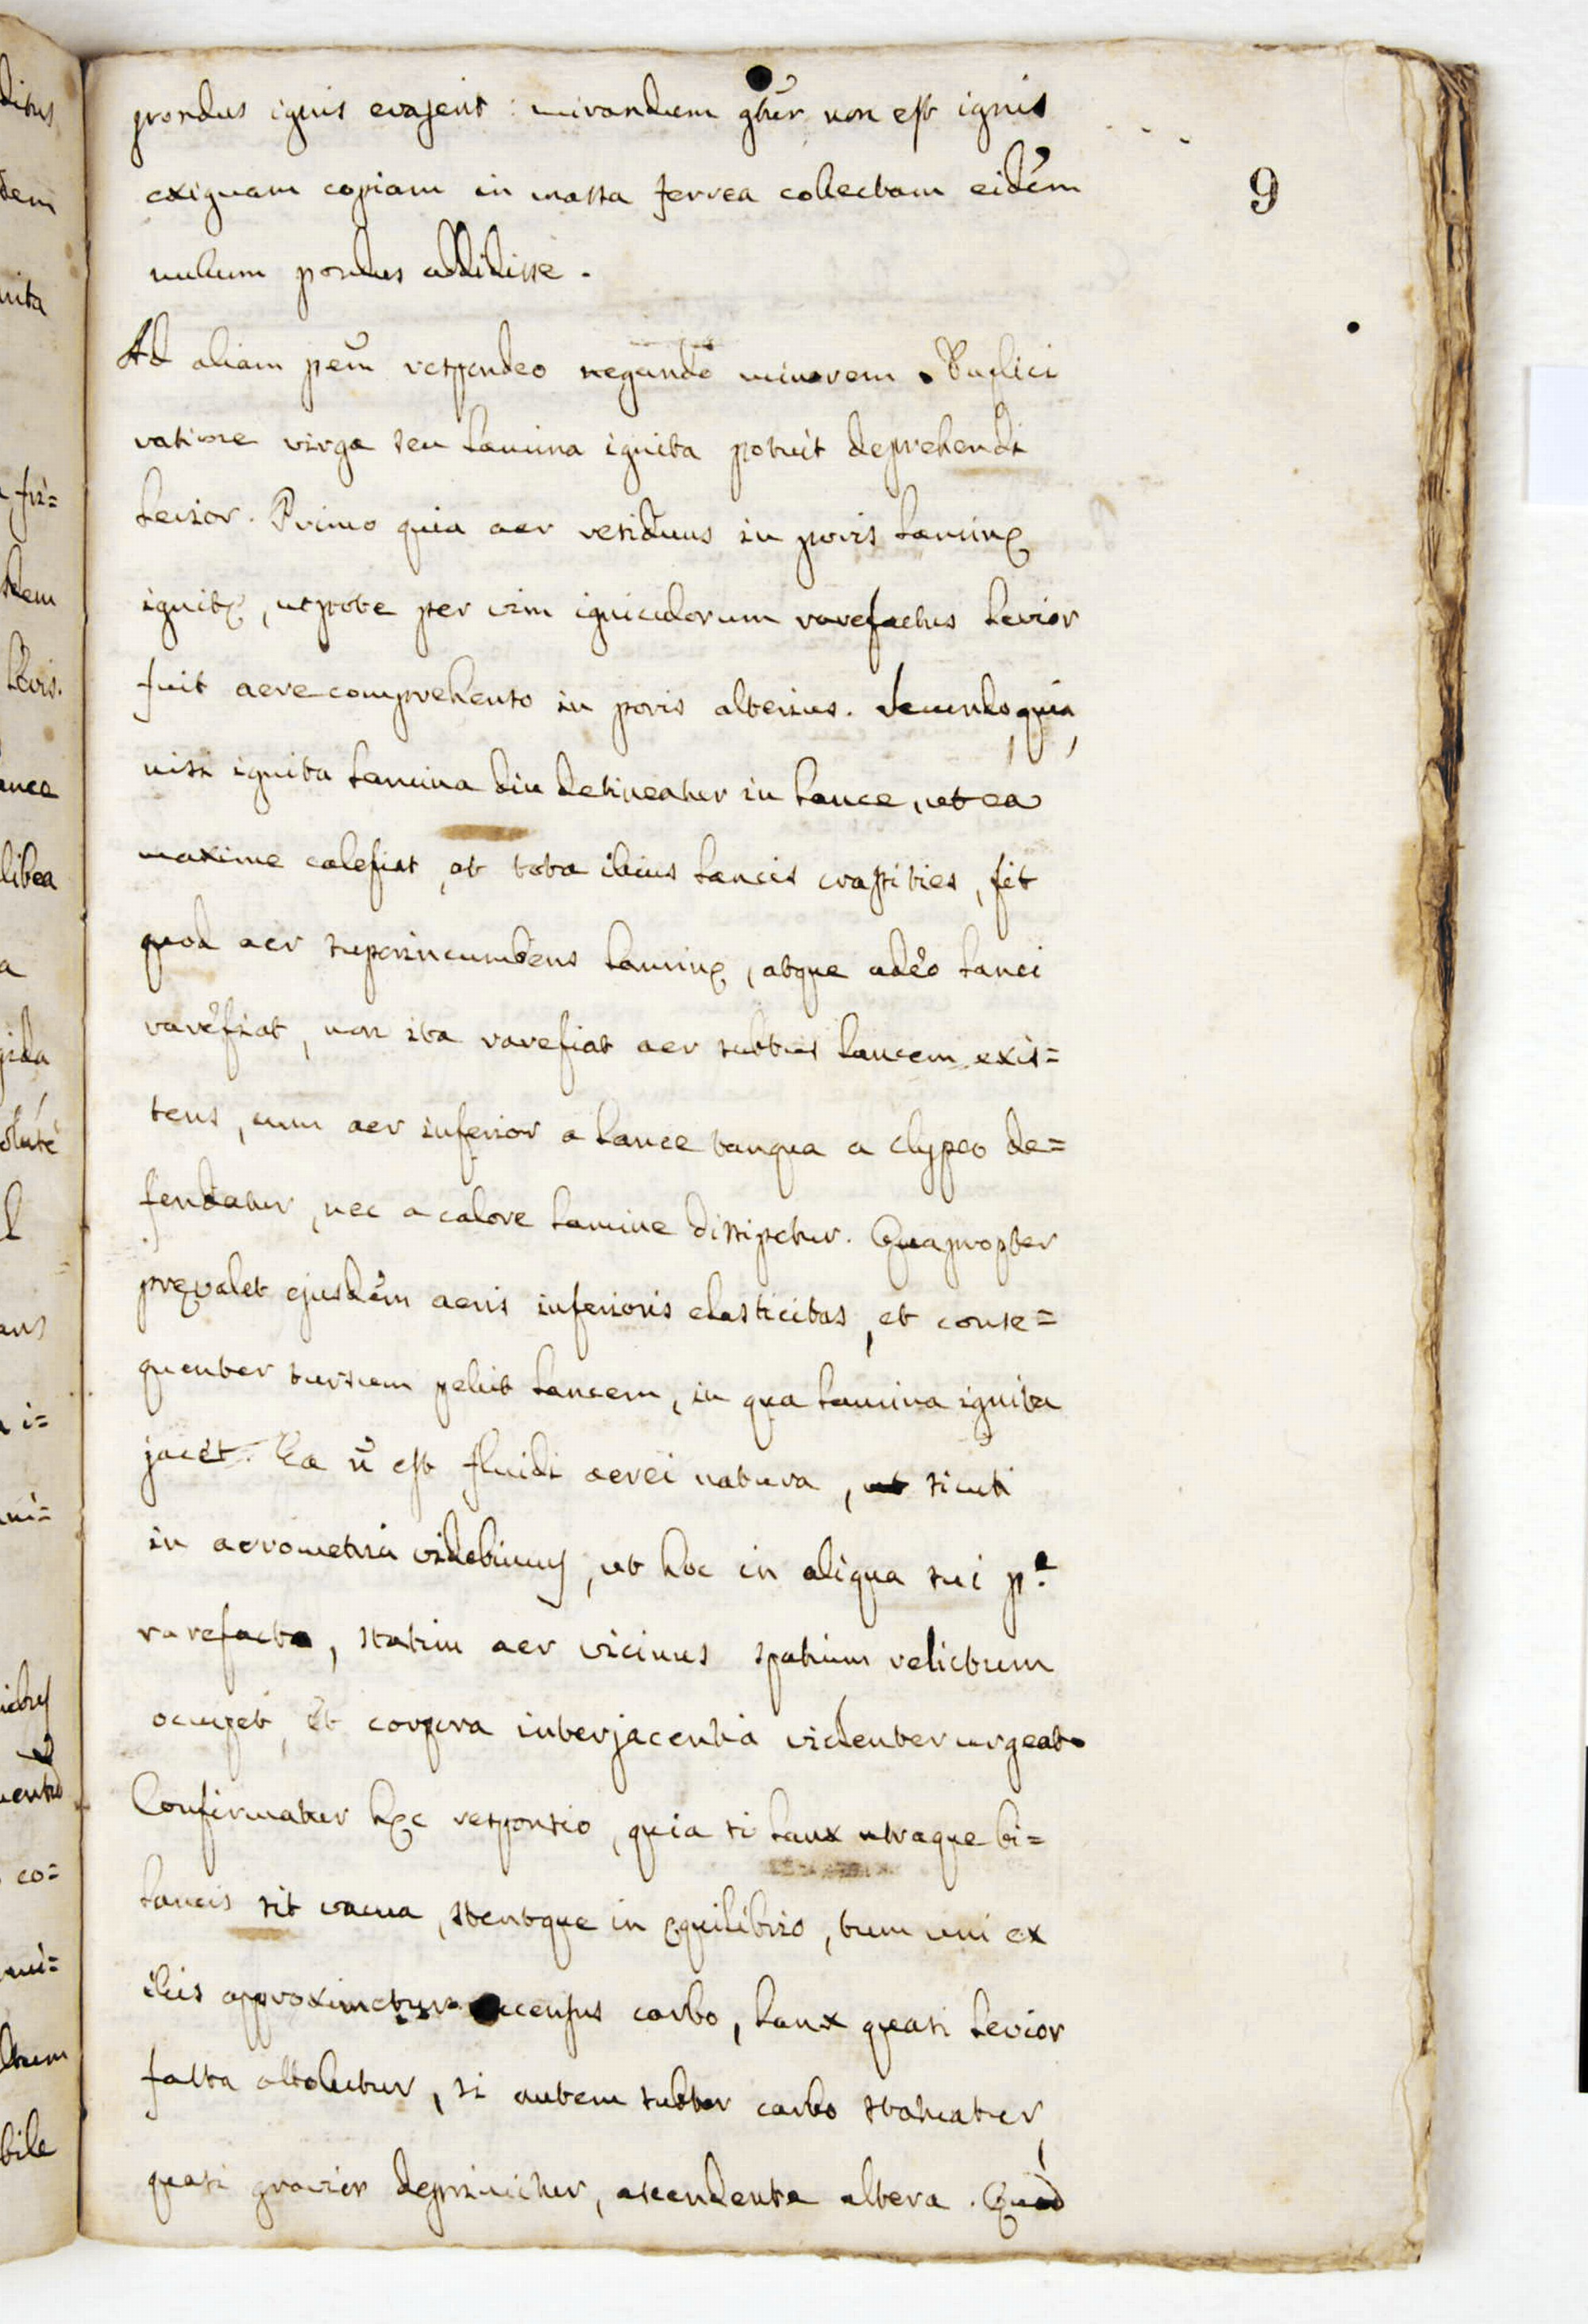 pondus ignis evaserit: mirandum gtur non est ignis
9
exiguam copiam in massa ferrea collectam eidem
nullum pondus addidisse.
Ad aliam pem respondeo negando minorem. Duplici
ratione virga seu lamina ignita potuit deprehendi
levior. Primo quia aer residuus in poris laminę
ignitę, utpote per vim igniculorum rarefactus levior
fuit aere comprehenso in poris alterius. Secundo, quia,
nisi ignita lamina diu detineatur in lance, ut ea
maxime calefiat, et tota illius lancis crassities, fit
quod aer superincumbens laminę, atque adeo lanci
rarefiat, non ita rarefiat aer subtus lancem exis=
tens, cum aer inferior a lance tanqua a clypeo de=
fendatur, nec a calore lamine dissipetur. Quapropter
pręvalet ejusdem aeris inferioris elasticitas, et conse=
quenter sursum pellit lancem, in qua lamina ignita
jacet. Ea n̄ est fluidi aerei natura, ut sicuti
in aerometria videbimus, ut hoc in aliqua sui p.e
rarefacto, statim aer vicinus spatium relictum
occupet, et corpora interjacentia videnter urgeat.
Confirmatur hęc responsio, quia si lanx utraque bi=
lancis sit vacua, stentque in ęquilibrio, tum uni ex
illis approximetur accensus carbo, lanx quasi levior
facta attolletur, si autem subter carbo statuatur,
quasi gravior deprimitur, ascendente altera. Quod